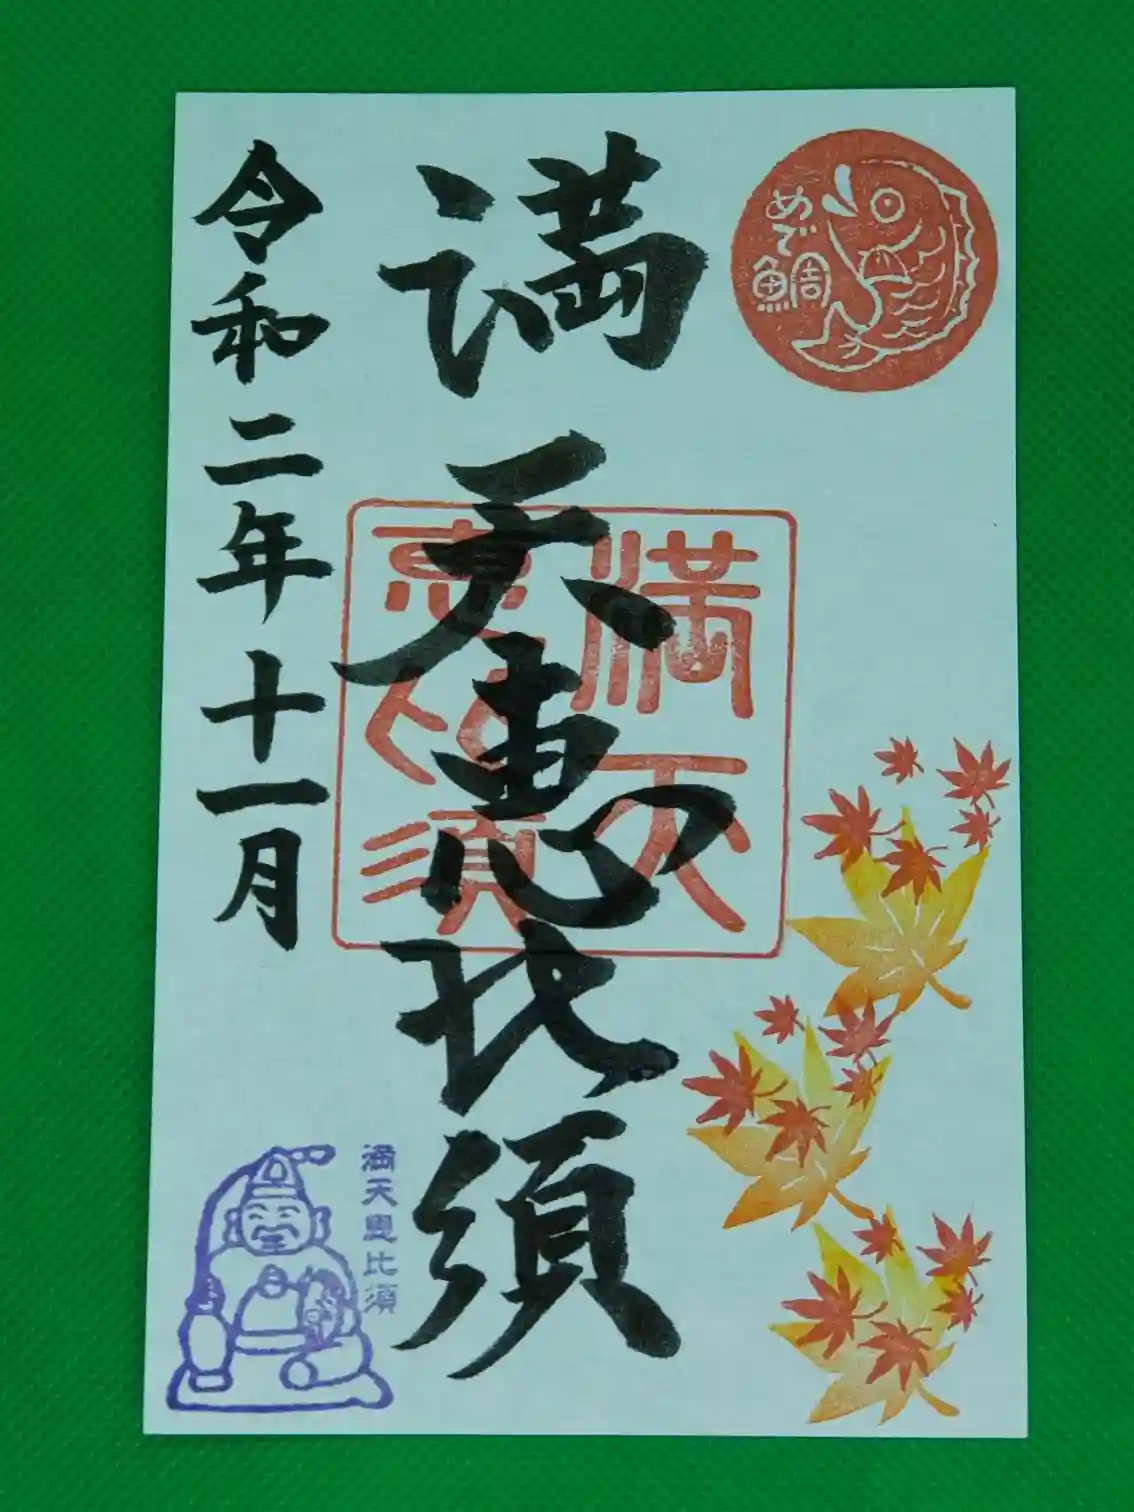 めで
鯛
満天恵比須
満天
恵比須
満天恵比須
令和二年十一月